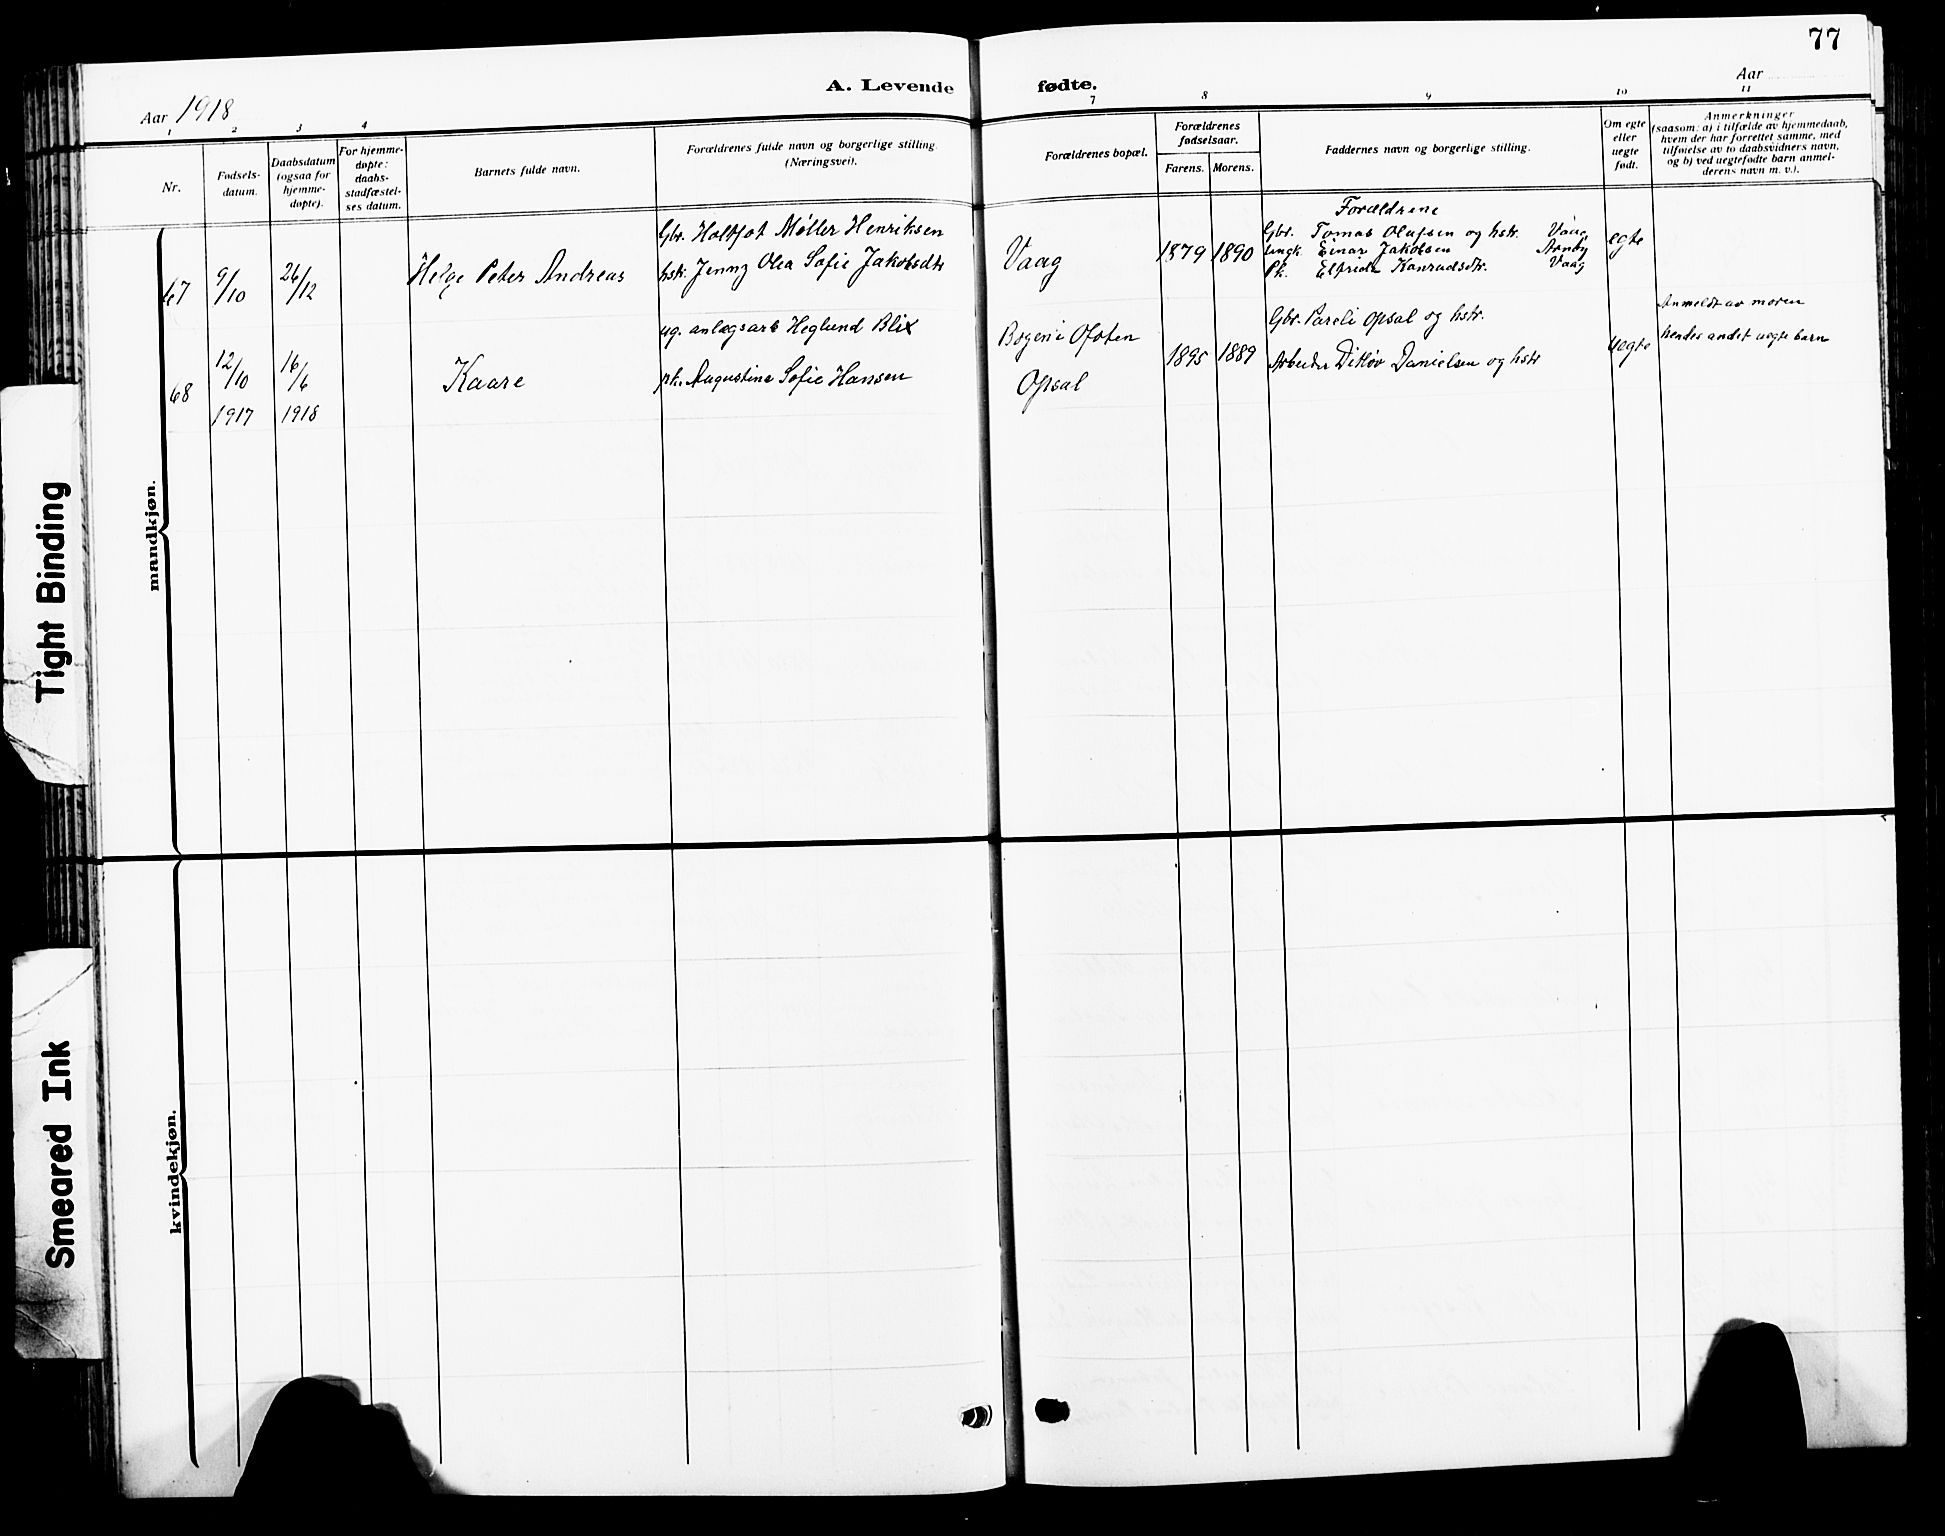 77
A. Levende fødte.
Aar 1918
Aar
1 2 3 4 7 8 9 10 11
Nr.
Fødsels-
datum.
Daabsdatum
(ogsaa for
hjemme-
døpte).
For hjemme-
døpte:
daabs-
stadfæstel-
ses datum.
Barnets fulde navn.
Forældrenes fulde navn og borgerlige stilling.
(Næringsvei).
Forældrenes bopæl.
Forældrenes
fødselsaar.
Farens. Morens.
Faddernes navn og borgerlige stilling.
Om egte
eller
uegte
født.
Anmerkninger
(saasom: a) i tilfælde av hjemmedaab,
hvem der har forrettet samme, med
tilføielse av to daabsvidners navn,
og b) ved uegtefødte barn anmel-
derens navn m. v.).
mandkjøn.
67
9/10
26/12
Helge Peter Andreas
Gbr. Møller Henriksen
hstr. Jenny Olea Sofie Jakobsdtr
Vaag
1879 1890
Forældrene
Gbr. Tomas Olufsen og hstr. Vaag
ungk Einar Jakobsen Arnøy
Pk. Elfrida Konradsdtr. Vaag
egte
68
12/10
1917
16/6
1918
Kaare
ug. anlægsarb Heglund Blix
pk. Augustine Sofie Hansen
Bogen i Ofoten
Opsal
1895 1889
Gbr. Pareli Opsal og hstr.
Arbeider Ditløv Danielsen og hstr
uegte
Anmeldt av moren
hendes andet uegte barn
kvindekjøn.
Tight Binding
Smeared Ink